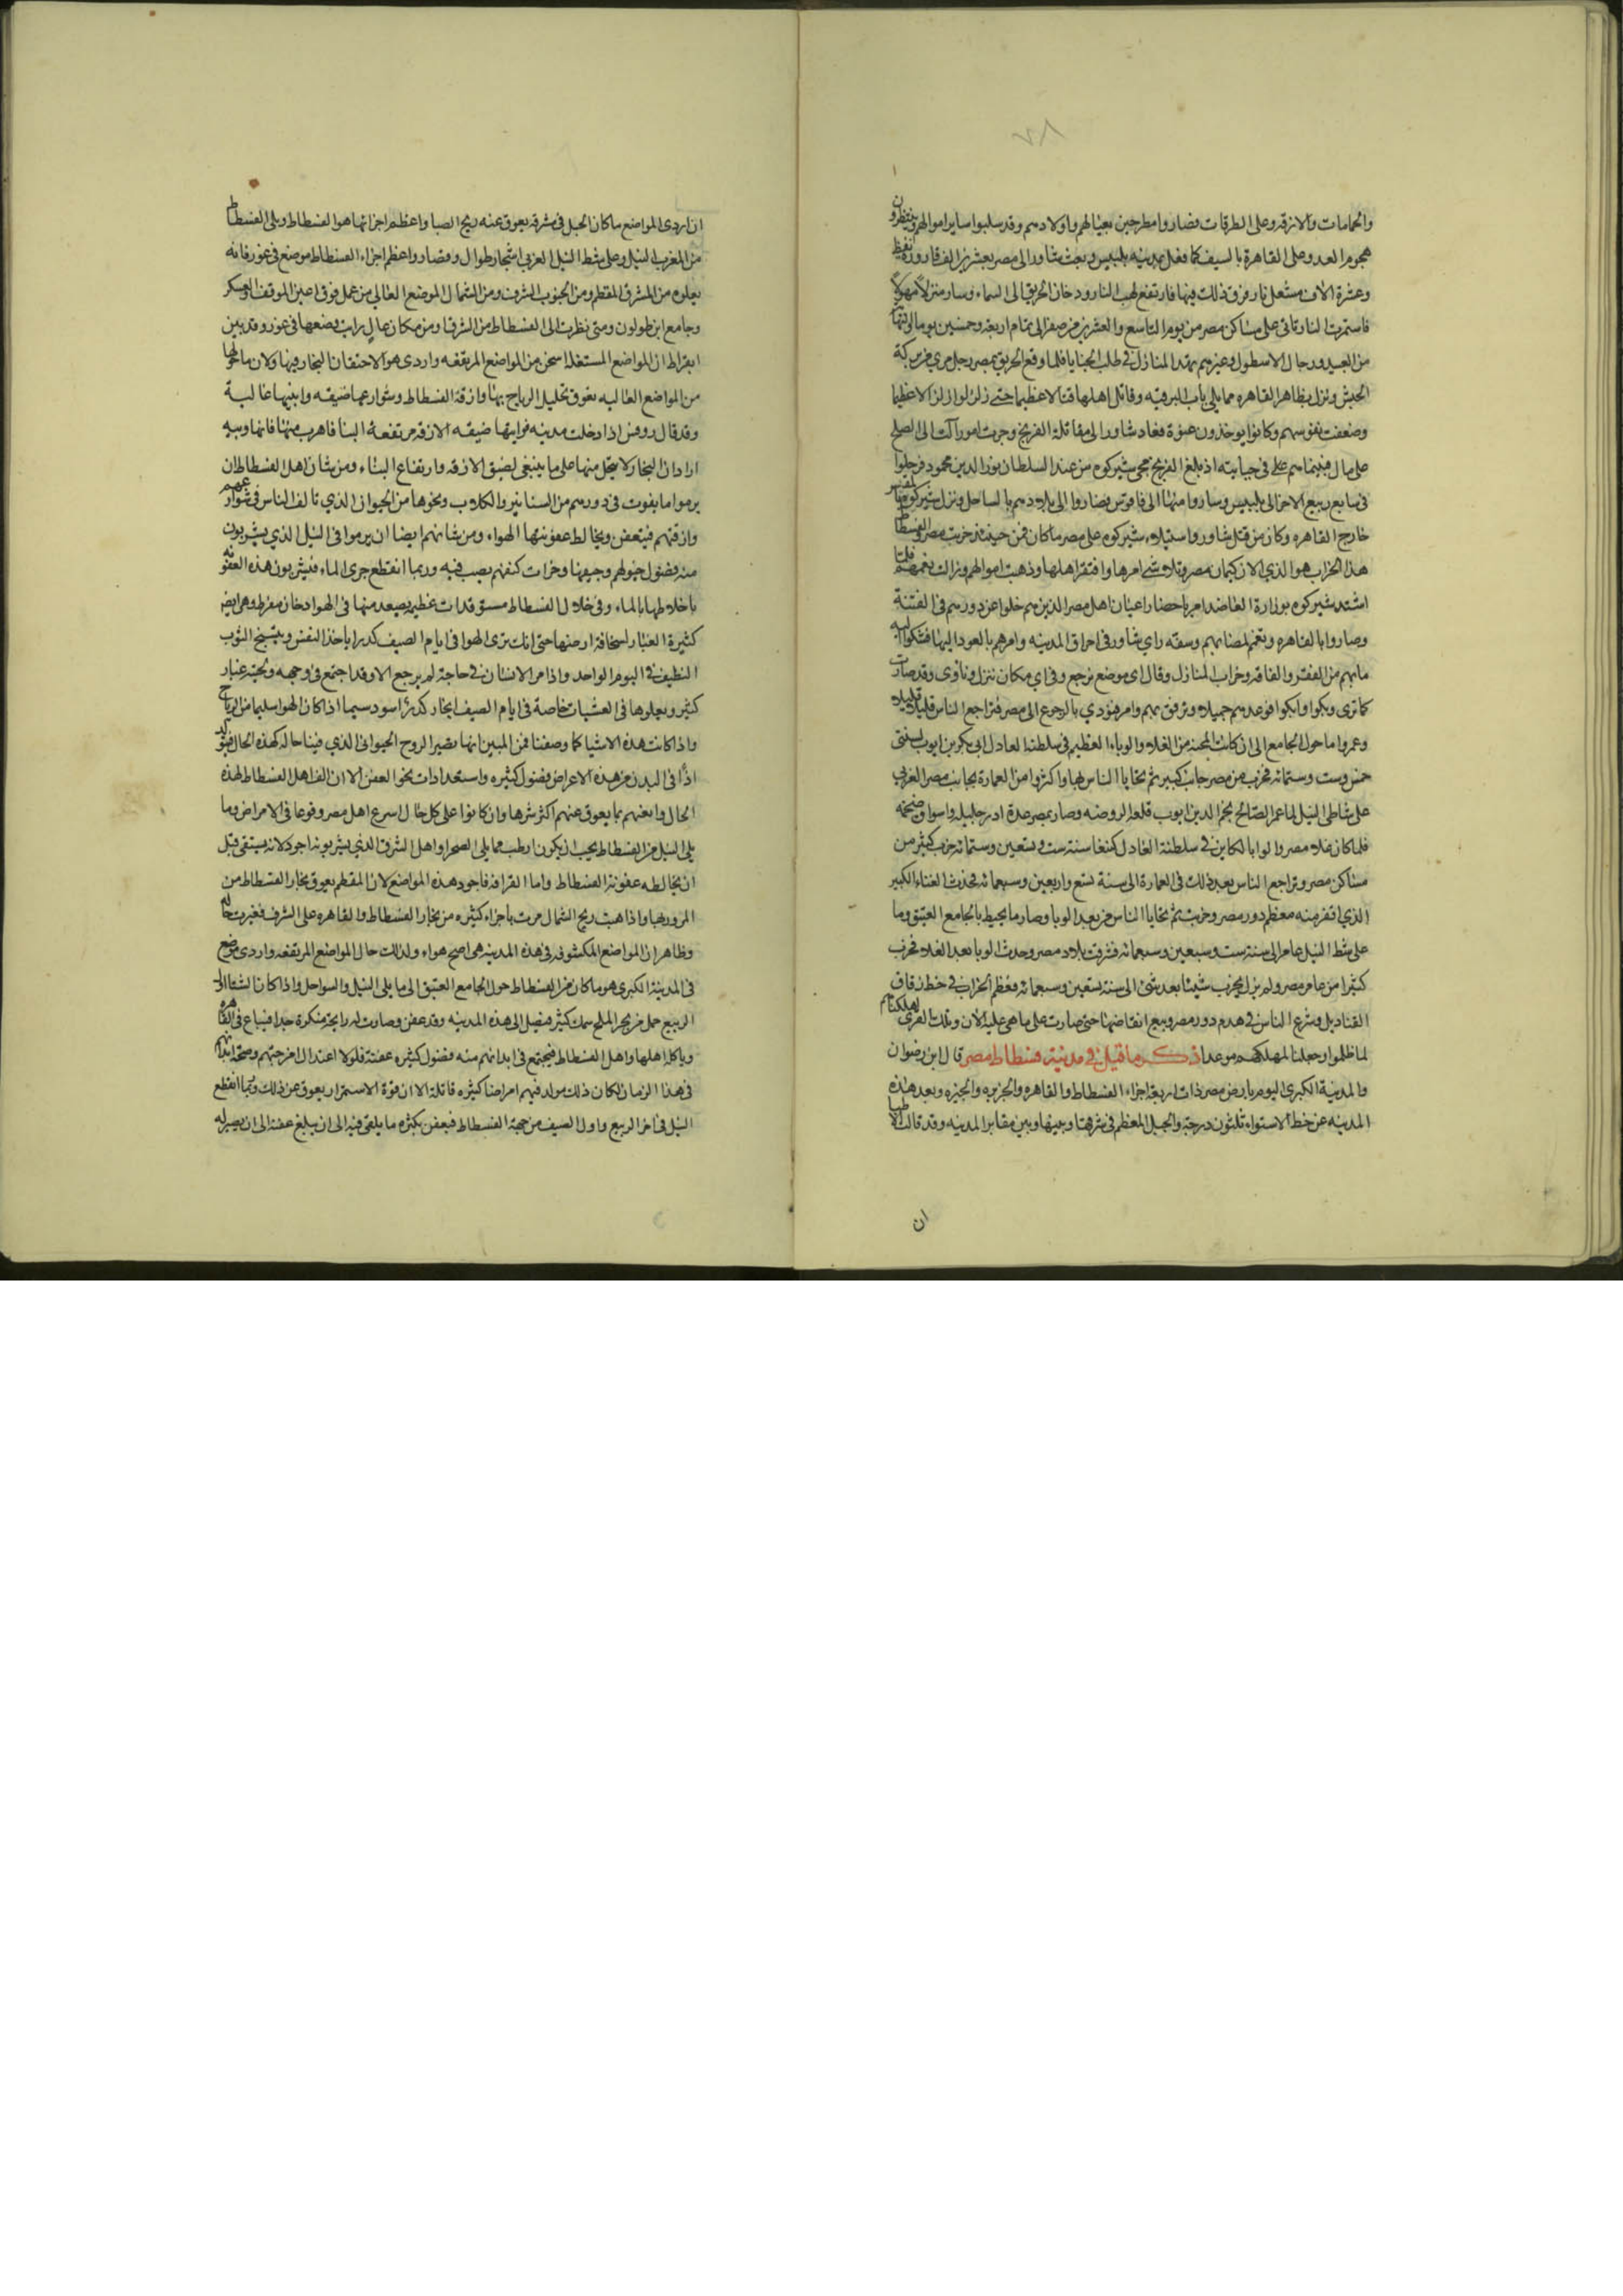 ٢٨
والحمامات والازقه وعلى الطرقات فصاروا مطرحين بعيالهم واولادهم وقد سلبوا ساير اموالهم وينتظرون
هجوم العدو على القاهرة بالسيف كما فعل بمدينه بلبيس وبعث شاور الى مصر بعشرين الف قارورة نفط
وعشرة الاف مشعل نار فرق ذلك فيها فارتفع لهب النار ودخان الحريق الى السماء وسار منزلا مهولا
فاستمرت النار تاتى على مساكن مصر من يوم التاسع والعشرين من صفر الى تمام اربعة وخمسين يوما والنهابة
من العبيد ورجال الاسطول وغيرهم بهذه المنازل فى طلب الخبايا فلما وقع الحريق بمصر رحل مري من بركة
الحبش ونزل بظاهر القاهره مما يلى باب البرقيه وقاتل اهلها قتالا عظيما حتى زلزلوا زلزالا عظيما
وضعفت نفوسهم وكانوا يوخذون عنوة فعاد شاور الى مقاتلة الفرنج وجرت امور آلت الى الصلح
على مال فبينما هم على فى جبايته اذ بلغ الفرنج مجى شيركوه من عند السلطان نور الدين محمود فرحلوا
فى سابع ربيع الاخر الى بلبيس وساروا منها الى فاقوس فصاروا الى بلادهم بالساحل ونزل شيركوه بالمقس
خارج القاهره وكان من قتل شاور واستيلاء شيركوه على مصر ما كان فمن حينئذ خربت مصر الفسطاط
هذا الخراب هو الذي الان كيمان مصر وتلاشى امرها وافتقر اهلها وذهبت اموالهم وزالت نعمهم فلما
استبد شيركوه بوزارة العاضد امر باحضار اعيان اهل مصر الذين هم خلوا عن دورهم فى الفتنة
وصاروا بالقاهره وتغمم لمصابهم وسفه راي شاور فى احراق المدينه وامرهم بالعود اليها فشكوا اليه
ما بهم من الفقر والفاقه وخراب المنازل وقالوا اى موضع نرجع وفى اي مكان ننزل وناوى وقد صارت
كما ترى وبكوا وابكوا فوعدهم جميلا وترفق بهم وامر فنودي بالرجوع الى مصر فتراجع الناس قليلا قليلا
وعمروا ما حول الجامع الى ان كانت المحنة من الغلاء والوباء العظيم فى سلطنة العادل ابى بكر بن ايوب لسنتى
خمس وست وستمائه فخرب من مصر جانب كبير ثم تحايا الناس بها واكثروا من العمارة بجانب مصر الغربي
على شاطئ النيل لما عمر الصالح نجم الدين ايوب قلعة الروضه وصار بمصر عدة ادر جليلة واسواق ضخمه
فلما كان غلاء مصر والوبا الكاين فى سلطنة العادل كتبغا سنة ست وتسعين وستمائه خرب كثير من
مساكن مصر وتراجع الناس بعد ذلك فى العمارة الى سنة تسع واربعين وسبعمائه فحدث الفناء الكبير
الذي اقفر منه معظم دور مصر وخربت ثم تحايا الناس من بعد الوبا وصار ما يحيط بالجامع العتيق وما
على شط النيل عامرا الى سنة ست وسبعين وسبعمائه فشرقت بلاد مصر وحدث الوبا بعد الغلاء فخرب
كثير من عامر مصر ولم يزل يخرب شيئا بعد شى الى سنة تسعين وسبعمائه فعظم الخراب فى خط زقاق
القناديل وشرع الناس فى هدم دور مصر وبيع انقاضها حتى صارت على ما هى عليه الان وتلك القرى اهلكناهم
لما ظلموا وجعلنا لمهلكهم موعدا ذكر ما قيل فى مدينة فسطاط مصر قال ابن رضوان
والمدينة الكبرى اليوم بارض مصر ذات اربعة اجزاء الفسطاط والقاهره والجزيره والجيزه وبعد هذه
المدينه عن خط الاستواء ثلثون درجة والجبل المقطم فى شرقها وبينها وبين مقابر المدينه وقد قالت الاطبا
ان
ان اردى المواضع ما كان الجبل فى شرقه يعوق عنه ريح الصبا واعظم اجزائها هو الفسطاط ويلى الفسطاط
من المغرب النيل وعلى شط النيل الغربى اشجار طوال وقصار واعظم اجزاء الفسطاط موضع فى غور فانه
يعلوه من المشرق المقطم ومن الجنوب الشرف ومن الشمال الموضع العالي من عمل فوق اعنى الموقف والعسكر
وجامع ابن طولون ومتى نظرت الى الفسطاط من الشرق او من مكان عال رايت وضعها فى غور وقد بين
ابقراط ان المواضع المستفله اسخن من المواضع المرتفعه واردى هوا لاحتقان البخار فيها ولان ما حولها
من المواضع العاليه تعوق تحليل الرياح بها وازقة الفسطاط وشوارعها ضيقه وابنيها عالية
وقد قال روفس اذا دخلت مدينه فرايتها ضيقه الازقه مرتفعة البنا فاهرب منها فانها وبيه
اراد ان البخار لا ينحل منها على ما ينبغى لضيق الازقه وارتفاع البناء ومن شان اهل الفسطاط ان
يرموا ما يموت فى دورهم من السنانير والكلاب ونحوها من الحيوان الذي يالف الناس فى شوارعهم
وازقتهم فيتعفن ويخالط عفونتها الهواء ومن شانهم ايضا ان يرموا فى النيل الذي يشربون
منه فضول حيوانهم وجيفها وخرات كنفهم يصب فيه وربما انقطع جرى الماء فيشربون هذه العفونه
باختلاطها بالماء وفى خلال الفسطاط مستوقدات عظيمه يصعد منها فى الهوا دخان مفرط وهى ايضا
كثيرة الغبار لسخافة ارضها حتى انك ترى الهوا فى ايام الصيف كدرا ياخذ النفس ويتسخ الثوب
النظيف فى اليوم الواحد واذا مر الانسان فى حاجة لم يرجع الا وقد اجتمع فى وجهه ولحيته غبار
كثير ويعلوها فى العشيات خاصة فى ايام الصيف بخار كدر اسود سيما اذا كان الهوا سليما من الرياح
واذا كانت هذه الاشيا كما وصفنا فمن المبين انها يصير الروح الحيوانى الذي فينا حاله كهذه الحال فيتولد
اذا فى البدن من هذه الاعراض فضول كثيره واستعدادات نحو العفن الا ان الف اهل الفسطاط لهذه
الحال وانسهم بها يعوق عنهم اكثر شرها وان كانوا على كل حال اسرع اهل مصر وقوعا فى الامراض وما
يلى النيل من الفسطاط يجب ان يكون ارطب مما يلى الصحرا واهل الشرف الذي يشربونه اجود لانه يستقى قبل
ان يخالطه عفونة الفسطاط واما القرافه فاجود هذه المواضع لان المقطم يعوق بخار الفسطاط من
المرور بها واذا هبت ريح الشمال مرت باجزاء كثيره من بخار الفسطاط والقاهره على الشرف فغيرت حاله
وظاهر ان المواضع المكشوفه فى هذه المدينه هى اصح هواء ولذلك حال المواضع المرتفعه واردى موضع
فى المدينة الكبرى هو ما كان من الفسطاط حول الجامع العتيق الى ما يلى النيل والسواحل واذا كان الشتاء اول
الربيع حمل من بحر الملح سمك كثير فيصل الى هذه المدينه وقد عفن وصارت له رايحة منكرة جدا فيباع فى القاهره
وياكله اهلها واهل الفسطاط فيجتمع فى ابدانهم منه فضول كثيره عفنة فلولا اعتدال امزجتهم وصحة ابدانهم
فى هذا الزمان لكان ذلك مولد فيهم امراضا كثيره قاتلة الا ان قوة الاستمرار يعوق عن ذلك وربما انقطع
النيل فى اخر الربيع واول الصيف من جهة الفسطاط فيعفن بكثرة ما يلقى فيه الى ان يبلغ عفنه الى ان يصير له